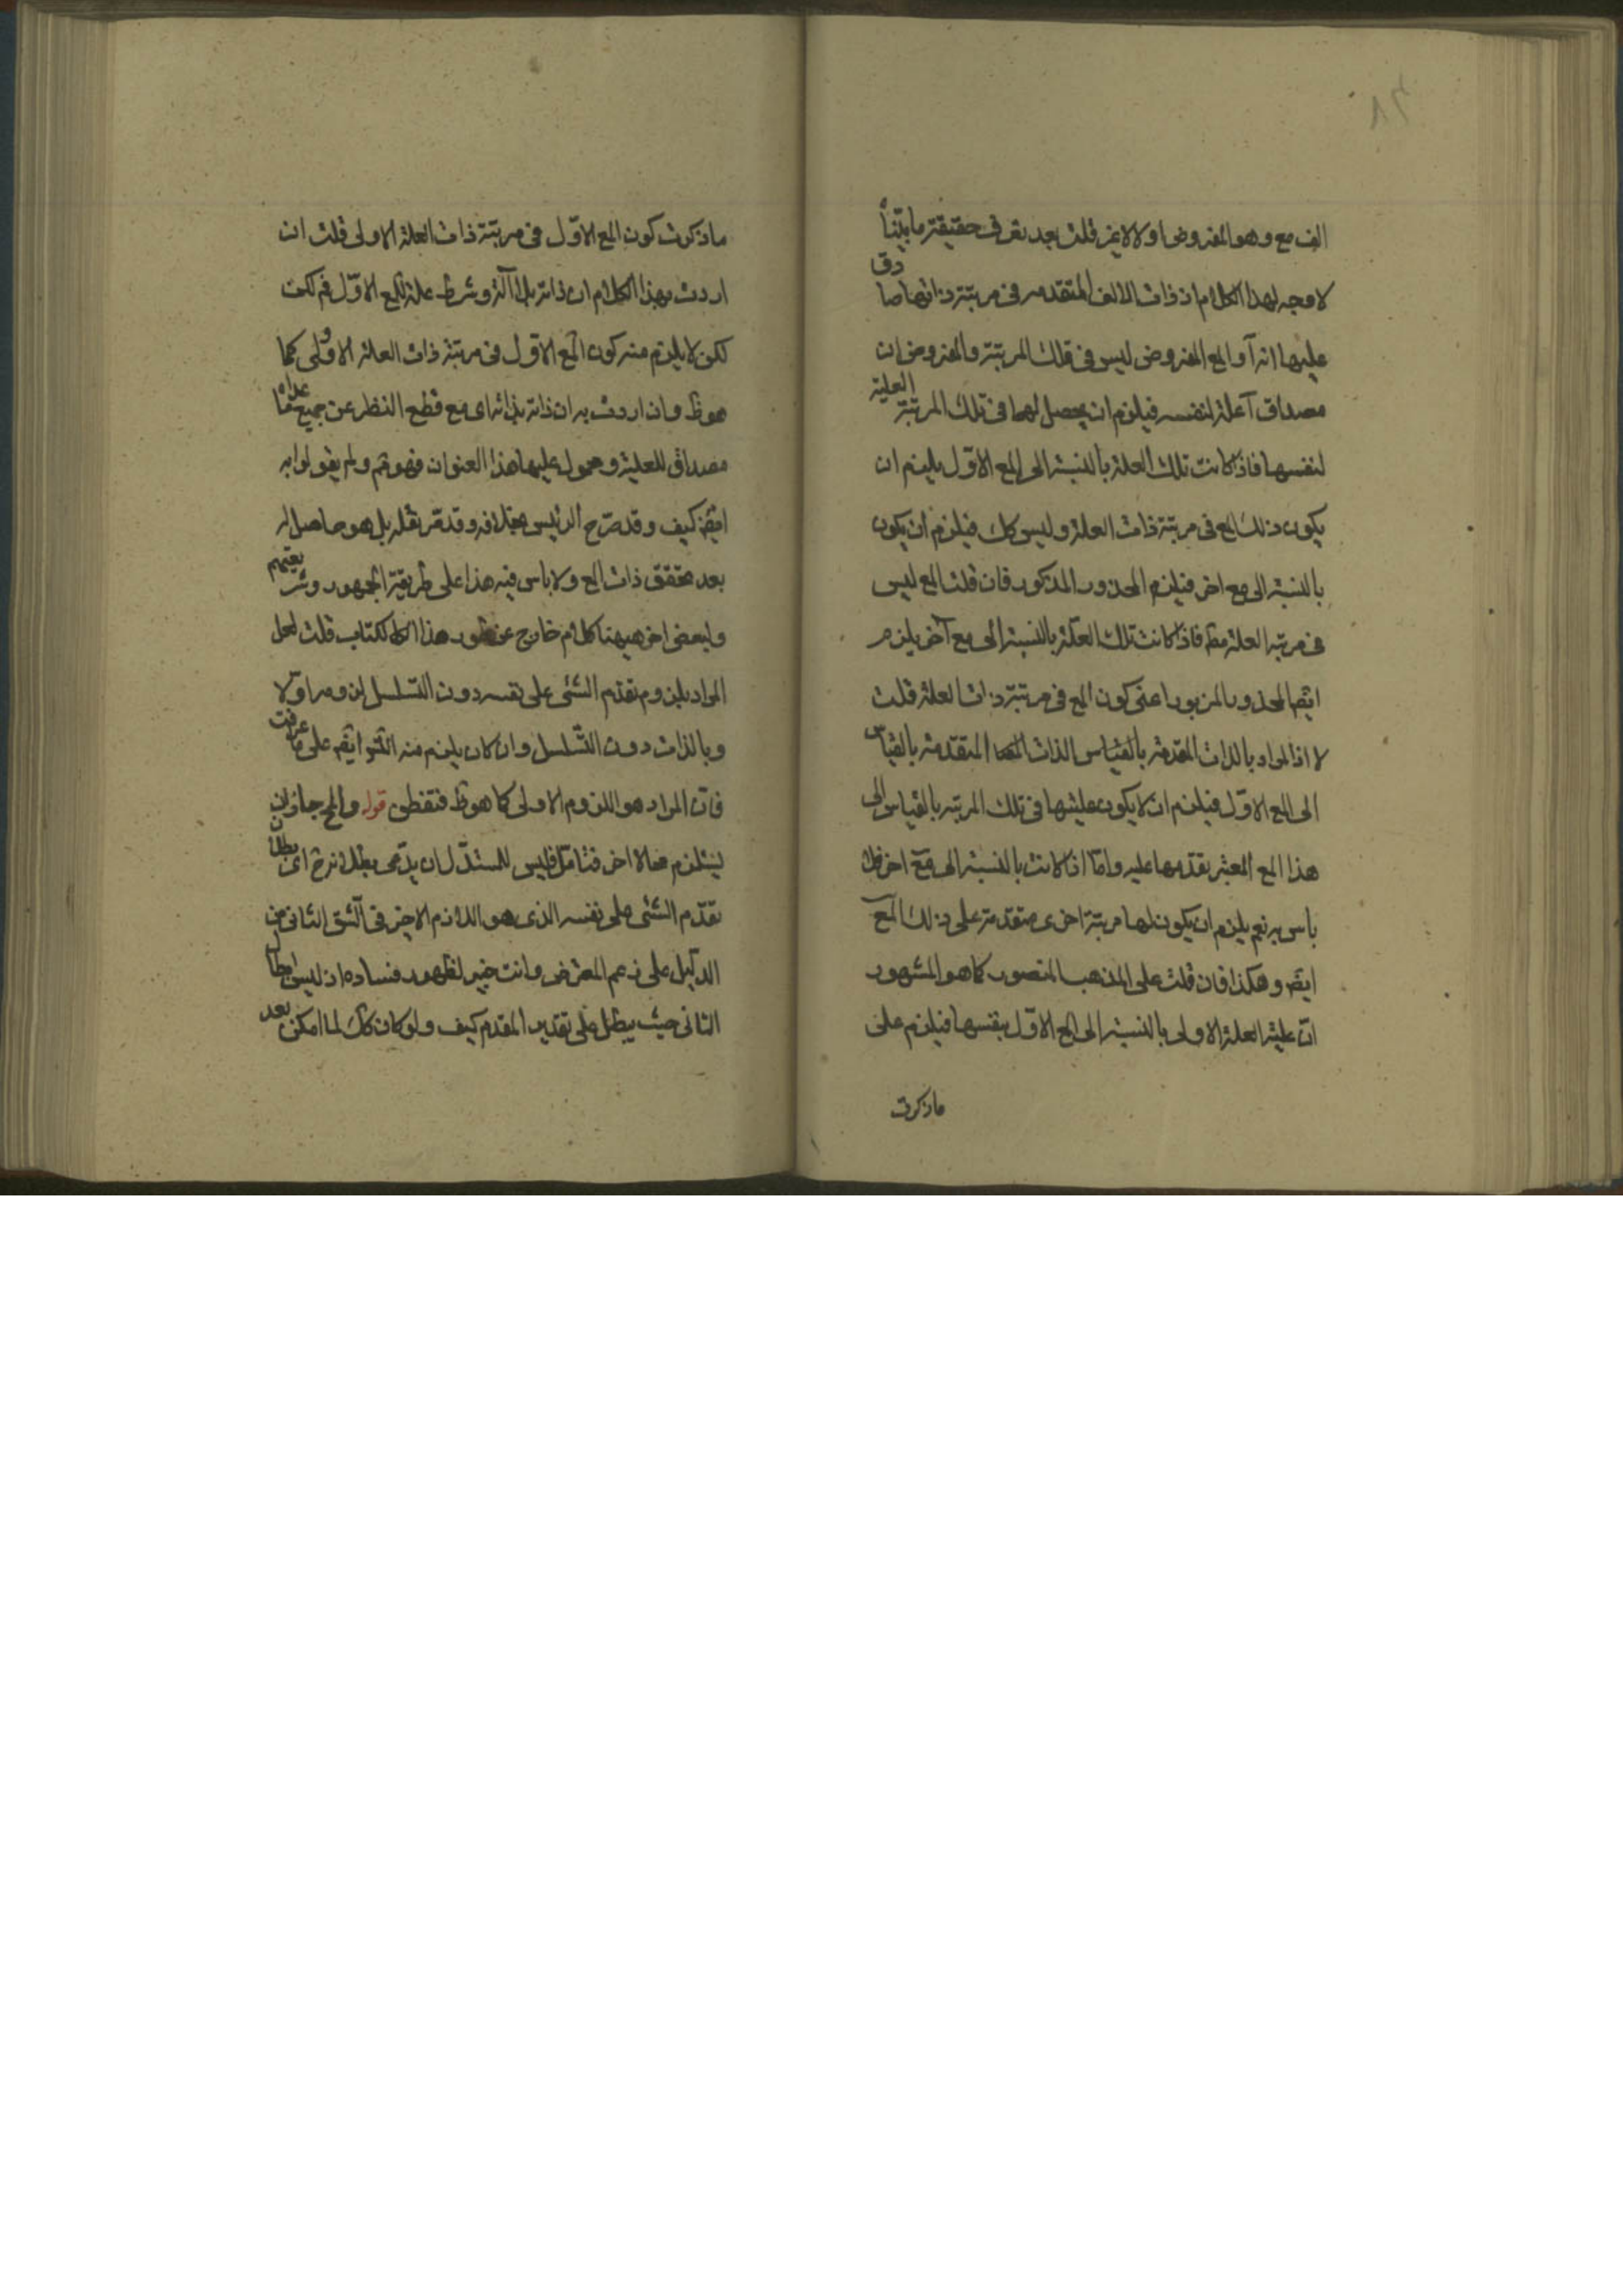 ٨٣
الف مع وهو المفروض او لا لايخ قلت بعد تعرف حقيقة ما بيّنّا
لا وجه لهذا الكلام اذ ذات الالف المتقدمه فى مرتبة ذاتها صادق
عليها انه آ و المع المفروض ليس فى تلك المرتبة والمفروض ان
مصداق آ علة لنفسه فيلزم ان يحصل لها فى تلك المرتبة العلية
لنفسها فاذا كانت تلك العلة بالنسبة الى المع الاوّل يلزم ان
يكون ذلك المع فى مرتبة ذات العلة وليس كك فيلزم ان يكون
بالنسبة الى مع اخر فيلزم المحذور المذكور فان قلت المع ليس
فى مرتبه العلة مط فاذا كانت تلك العلة بالنسبة الى مع آخر يلزم
ايضم المحذور المزبور اعنى كون المع فى مرتبة ذات العلة قلت
لا اذ المراد بالذات المقدمة بالقياس الذات المتقدمة بالقياس
الى المع الاوّل فيلزم ان لا يكون عليتها فى تلك المرتبه بالقياس الى
هذا المع المعتبر تقدمها عليه وامّا اذا كانت بالنسبة الى مع اخر فلا
باس به نعم يلزم ان يكون لها مرتبة اخرى متقدمة على ذلك المع
ايضم وهكذا فان قلت على المذهب المنصور كما هو المشهور
انّ علية العلة الاولى بالنسبة الى المع الاوّل بنفسها فيلزم على
ماذكرت
ماذكرت كون المع الاوّل فى مرتبة ذات العلة الاولى قلت ان
اردت بهذا الكلام ان ذاته بلا آلة وشرط علة للمع الاوّل فم لكن
لكن لا يلزم منه كون المع الاوّل فى مرتبة ذات العلة الاولى كما
هو ظ وان اردت به ان ذاته بذاته اى مع قطع النظر عن جميع ما عداه
مصداق للعلية ومحمول عليها هذا العنوان فهو مم ولم يقولوا به
ايضم كيف وقد صرّح الرئيس بخلافه وقد مر نقله بل هو حاصل له
بعد تحقق ذات المع ولا باس فيه هذا على طريقة الجمهور وشرذمة
ولبعض اخر هيهنا كلام خارج عن طور هذا الكتاب قلت لعل
المراد يلزوم تقدم الشئ على نفسه دون التسلسل لزومه اوّلا
وبالذات دون التسلسل وان كان يلزم منه ايضم على ما عرفت
فانّ المراد هو اللزوم الاولى كما هو ظ فتفطن قوله والمح جاز ان
يستلزم محالا اخر فتامّل فليس للمستدلّ ان يدّعى بطلانه ح اى بطلان
تقدّم الشئ على نفسه الذى هو اللازم الاخير فى الشق الثانى من
الدليل على زعم المعترض وانت خبير لظهور فساده اذ ليس ابطال
الثانى حيث يبطل على تقدير المقدم كيف ولو كان كك لما امكن بعد